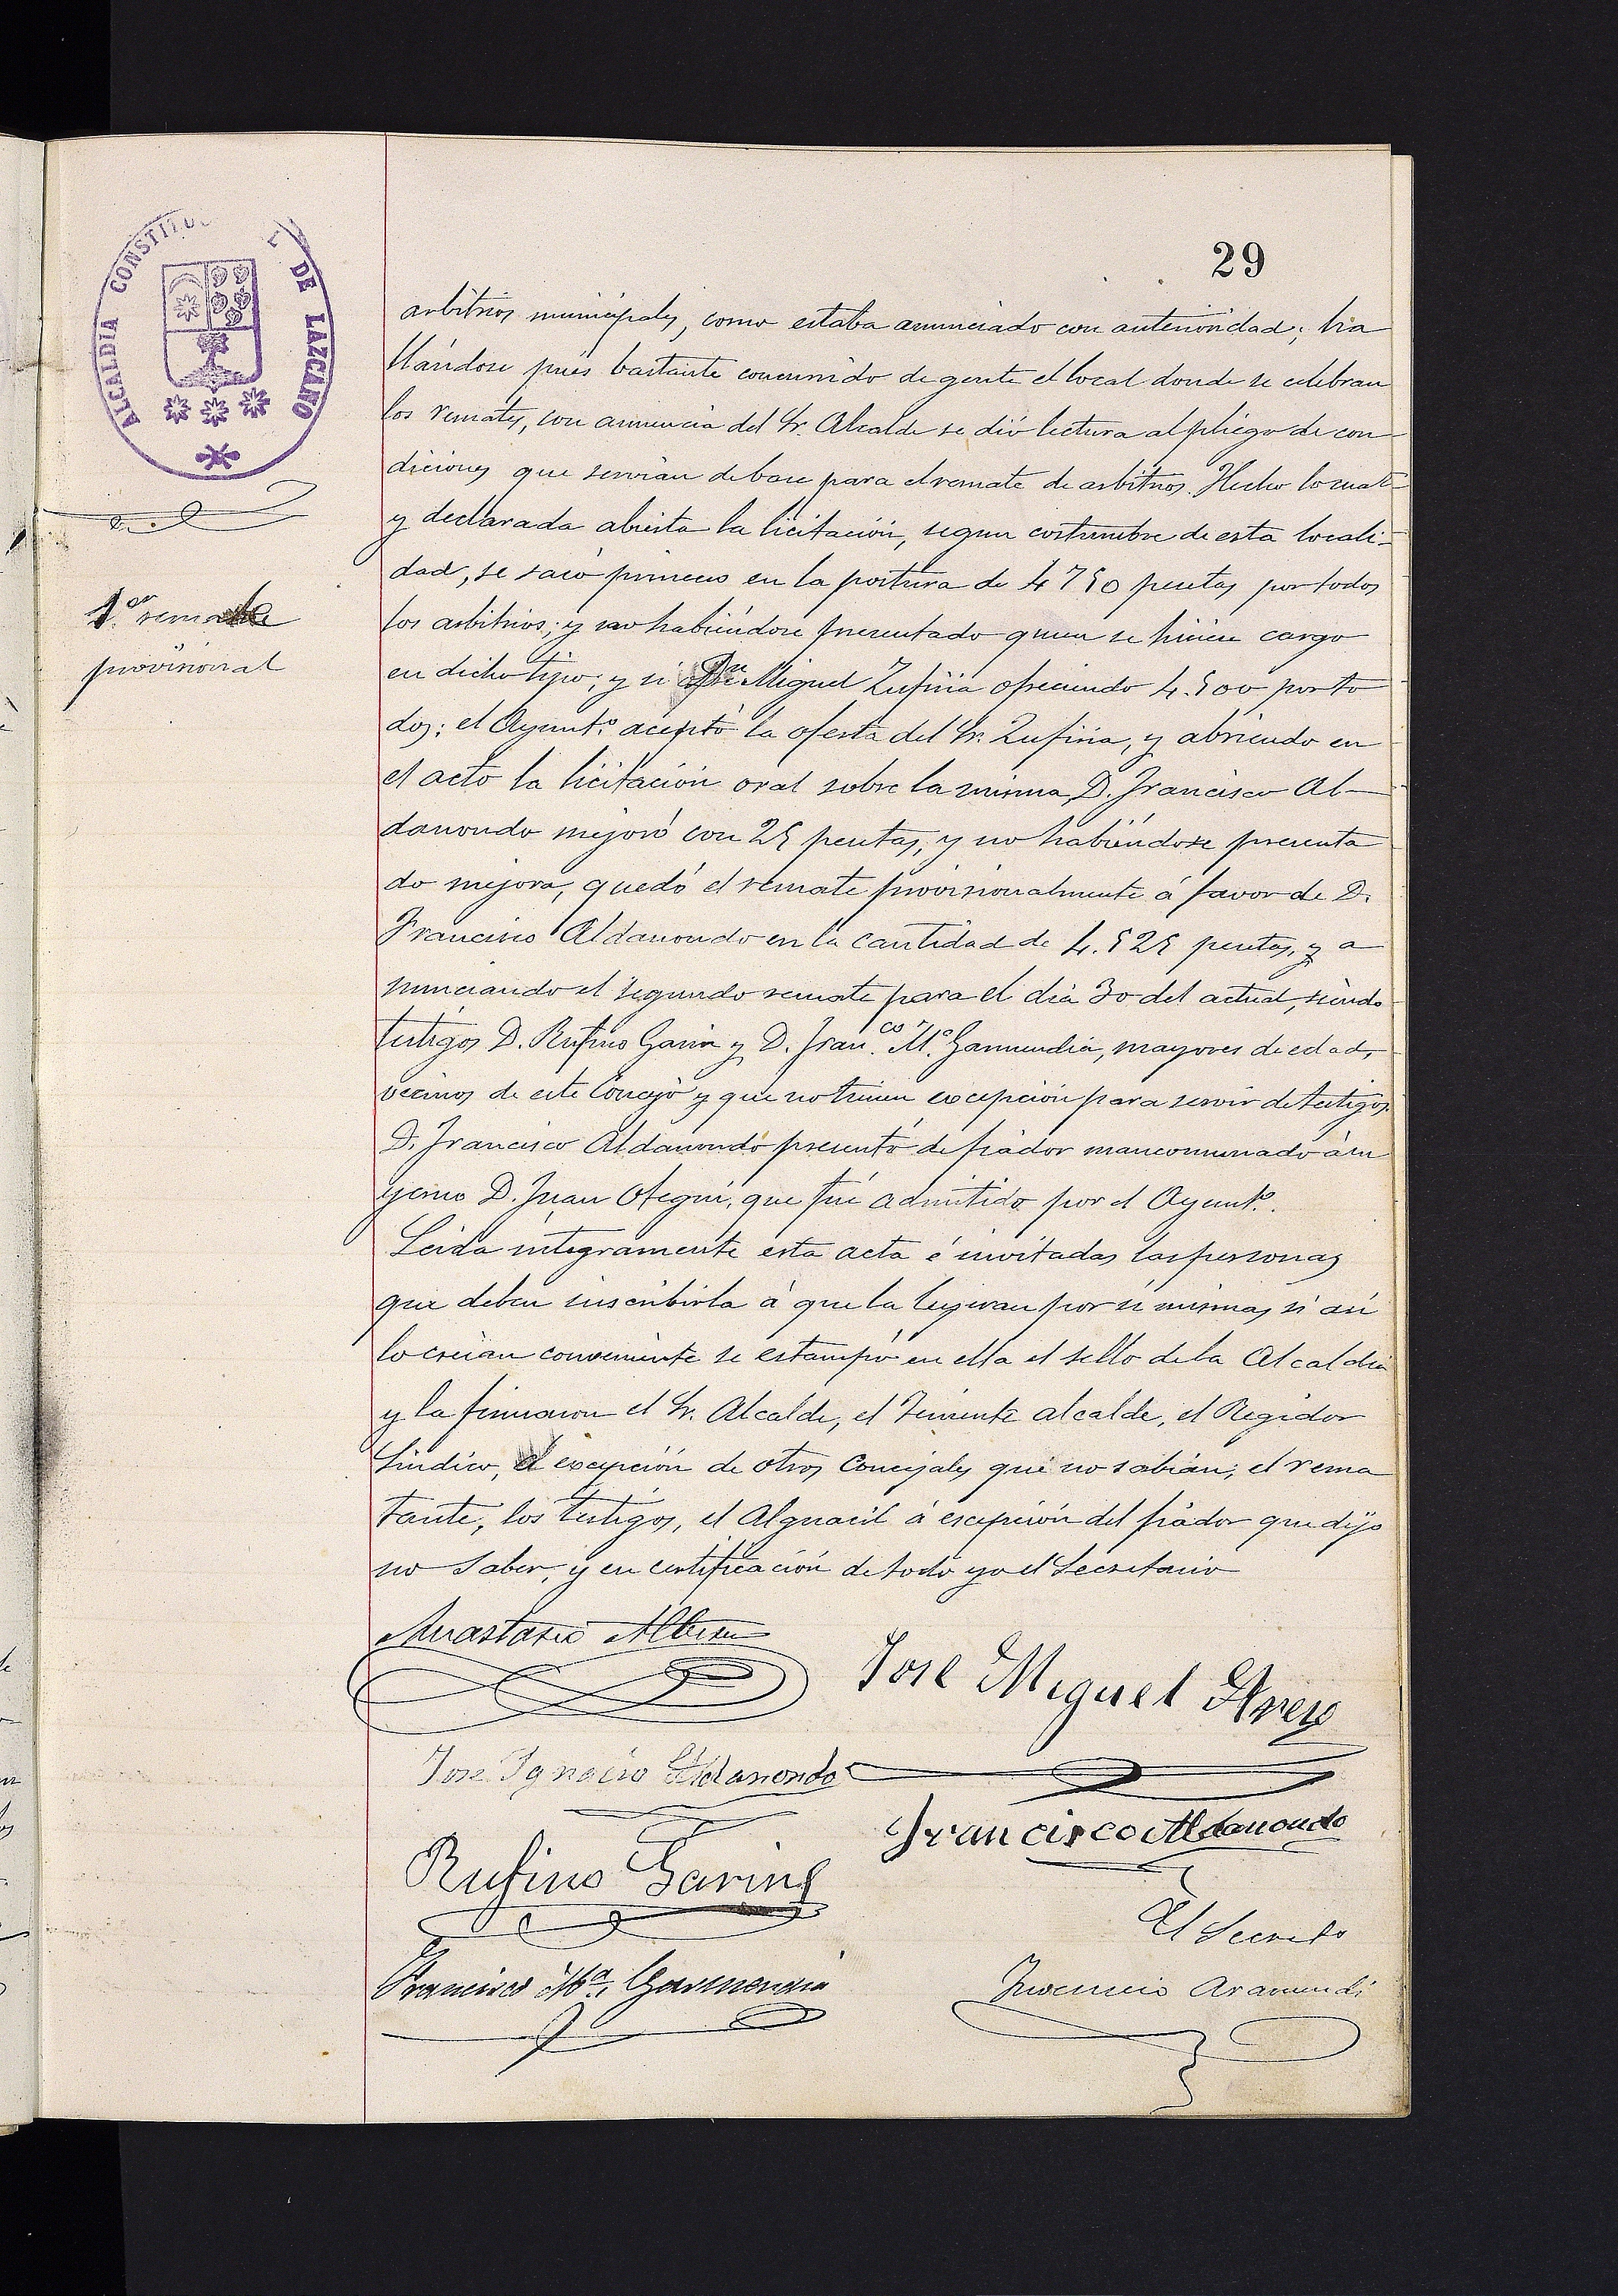 29
ALCALDIA CONSTITUC L DE LAZCANO
1.er remate
provisional
arbitrios municipales, como estaba anunciado con anterioridad; ha
llándose pués bastante concurrido de gente el local donde se celebran
los remates, con anuencia del Sr. Alcalde se dió lectura al pliego de con-
diciones que servian de base para el remate de arbitrios. Hecho lo cual
y declarada abierta la licitación, segun costumbre de esta locali-
dad, se sacó primero en la postura de 4750 pesetas por todos
los arbitrios; y no habiéndose presentado quien se hiciere cargo
en dicho tipo, y si Dn Miguel Zufiria ofreciendo 4.500 por to
dos; el Ayunt.º aceptó la oferta del Sr. Zufiria, y abriendo en
el acto la licitación oral sobre la misma, D. Francisco Al-
danondo mejoró con 25 pesetas, y no habiéndose presenta
do mejora, quedó el remate provisionalmente á favor de D.
Francisco Aldanondo en la cantidad de 4.525 pesetas, y a
nunciando el segundo remate para el dia 30 del actual, siendo
testigos D. Rufino Garin y D. Fran.co M.ª Garmendia, mayores de edad,
vecinos de este Concejo y que no tienen excepción para servir de testigos.
D. Francisco Aldanondo presentó de fiador mancomunado á su
yerno D. Juan Otegui, que fué admitido por el Ayunt.º.
Leida integramente esta acta é invitadas las personas
que deben suscribirla á que la leyeran por sí mismas si asi
lo creian conveniente se estampó en ella el sello de la Alcaldia
y la firmaron el Sr. Alcalde, el Teniente alcalde, el Regidor
Sindico, á excepción de otros Concejales que no sabian; el rema
tante, los testigos, el Alguacil á escepción del fiador que dijo
no saber, y en certificación de todo yo el Secretario
Anastasio
Jose Miguel
Jose Ignacio Aldanondo
Francisco Aldanondo
Rufino Garin
El Secret.º
Francisco M.ª Garmendia
Inocencio Aramendi